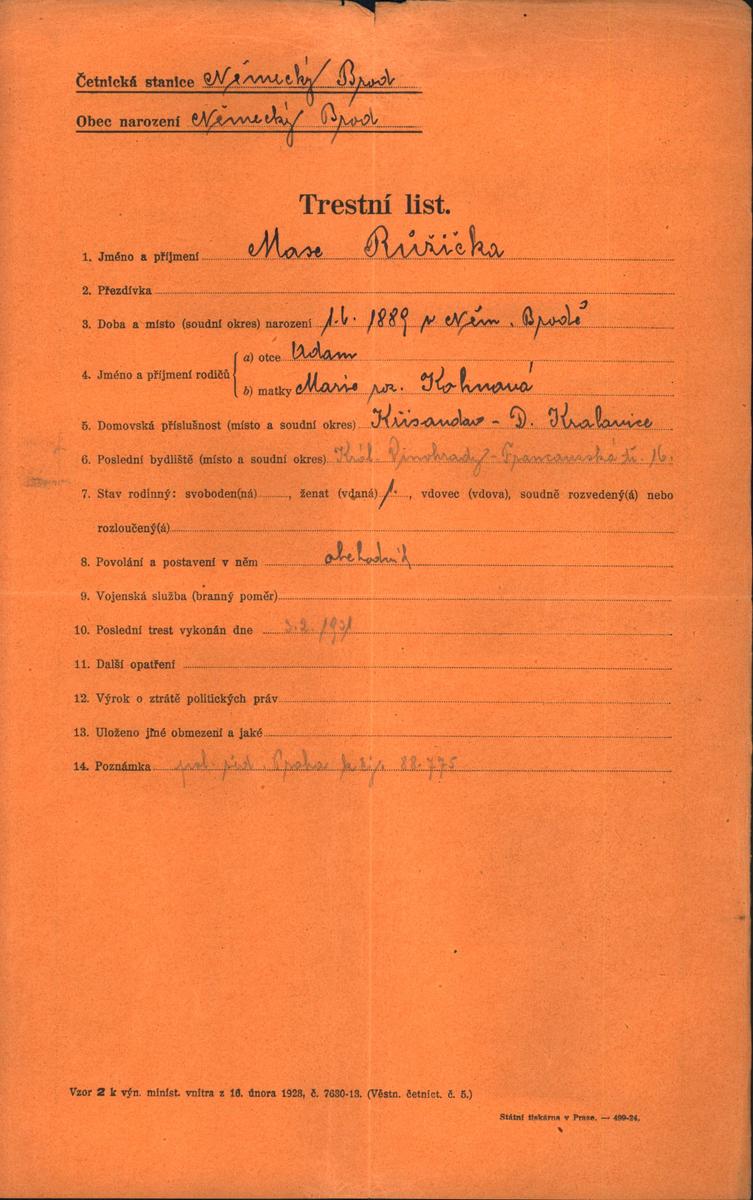 Četnická stanice Německý Brod
Obec narození Německý Brod
Trestní list.
1. Jméno a příjmení Maxe Růžička
2. Přezdívka
3. Doba a místo (soudní okres) narození 1889 v Něm. Brodě
4. Jméno a příjmení rodičů
a) otce Adam
b) matky Marie roz. Kohnová
5. Domovská příslušnost (místo a soudní okres) Křisandov - D. Kralovice
6. Poslední bydliště (místo a soudní okres) Král. Vinohrady - tř. 16.
7. Stav rodinný: svoboden(ná) , ženat (vdaná) 1. , vdovec (vdova), soudně rozvedený(á) nebo
rozloučený(á)
8. Povolání a postavení v něm obchodník
9. Vojenská služba (branný poměr)
10. Poslední trest vykonán dne 3.2. 1931
11. Další opatření
12. Výrok o ztrátě politických práv
13. Uloženo jiné obmezení a jaké
14. Poznámka pol. řed. Praha 88.775
Vzor 2 k výn. minist. vnitra z 16. února 1928, č. 7630-13. (Věstn. četnict. č. 5.)
Státní tiskárna v Praze. — 499-24.